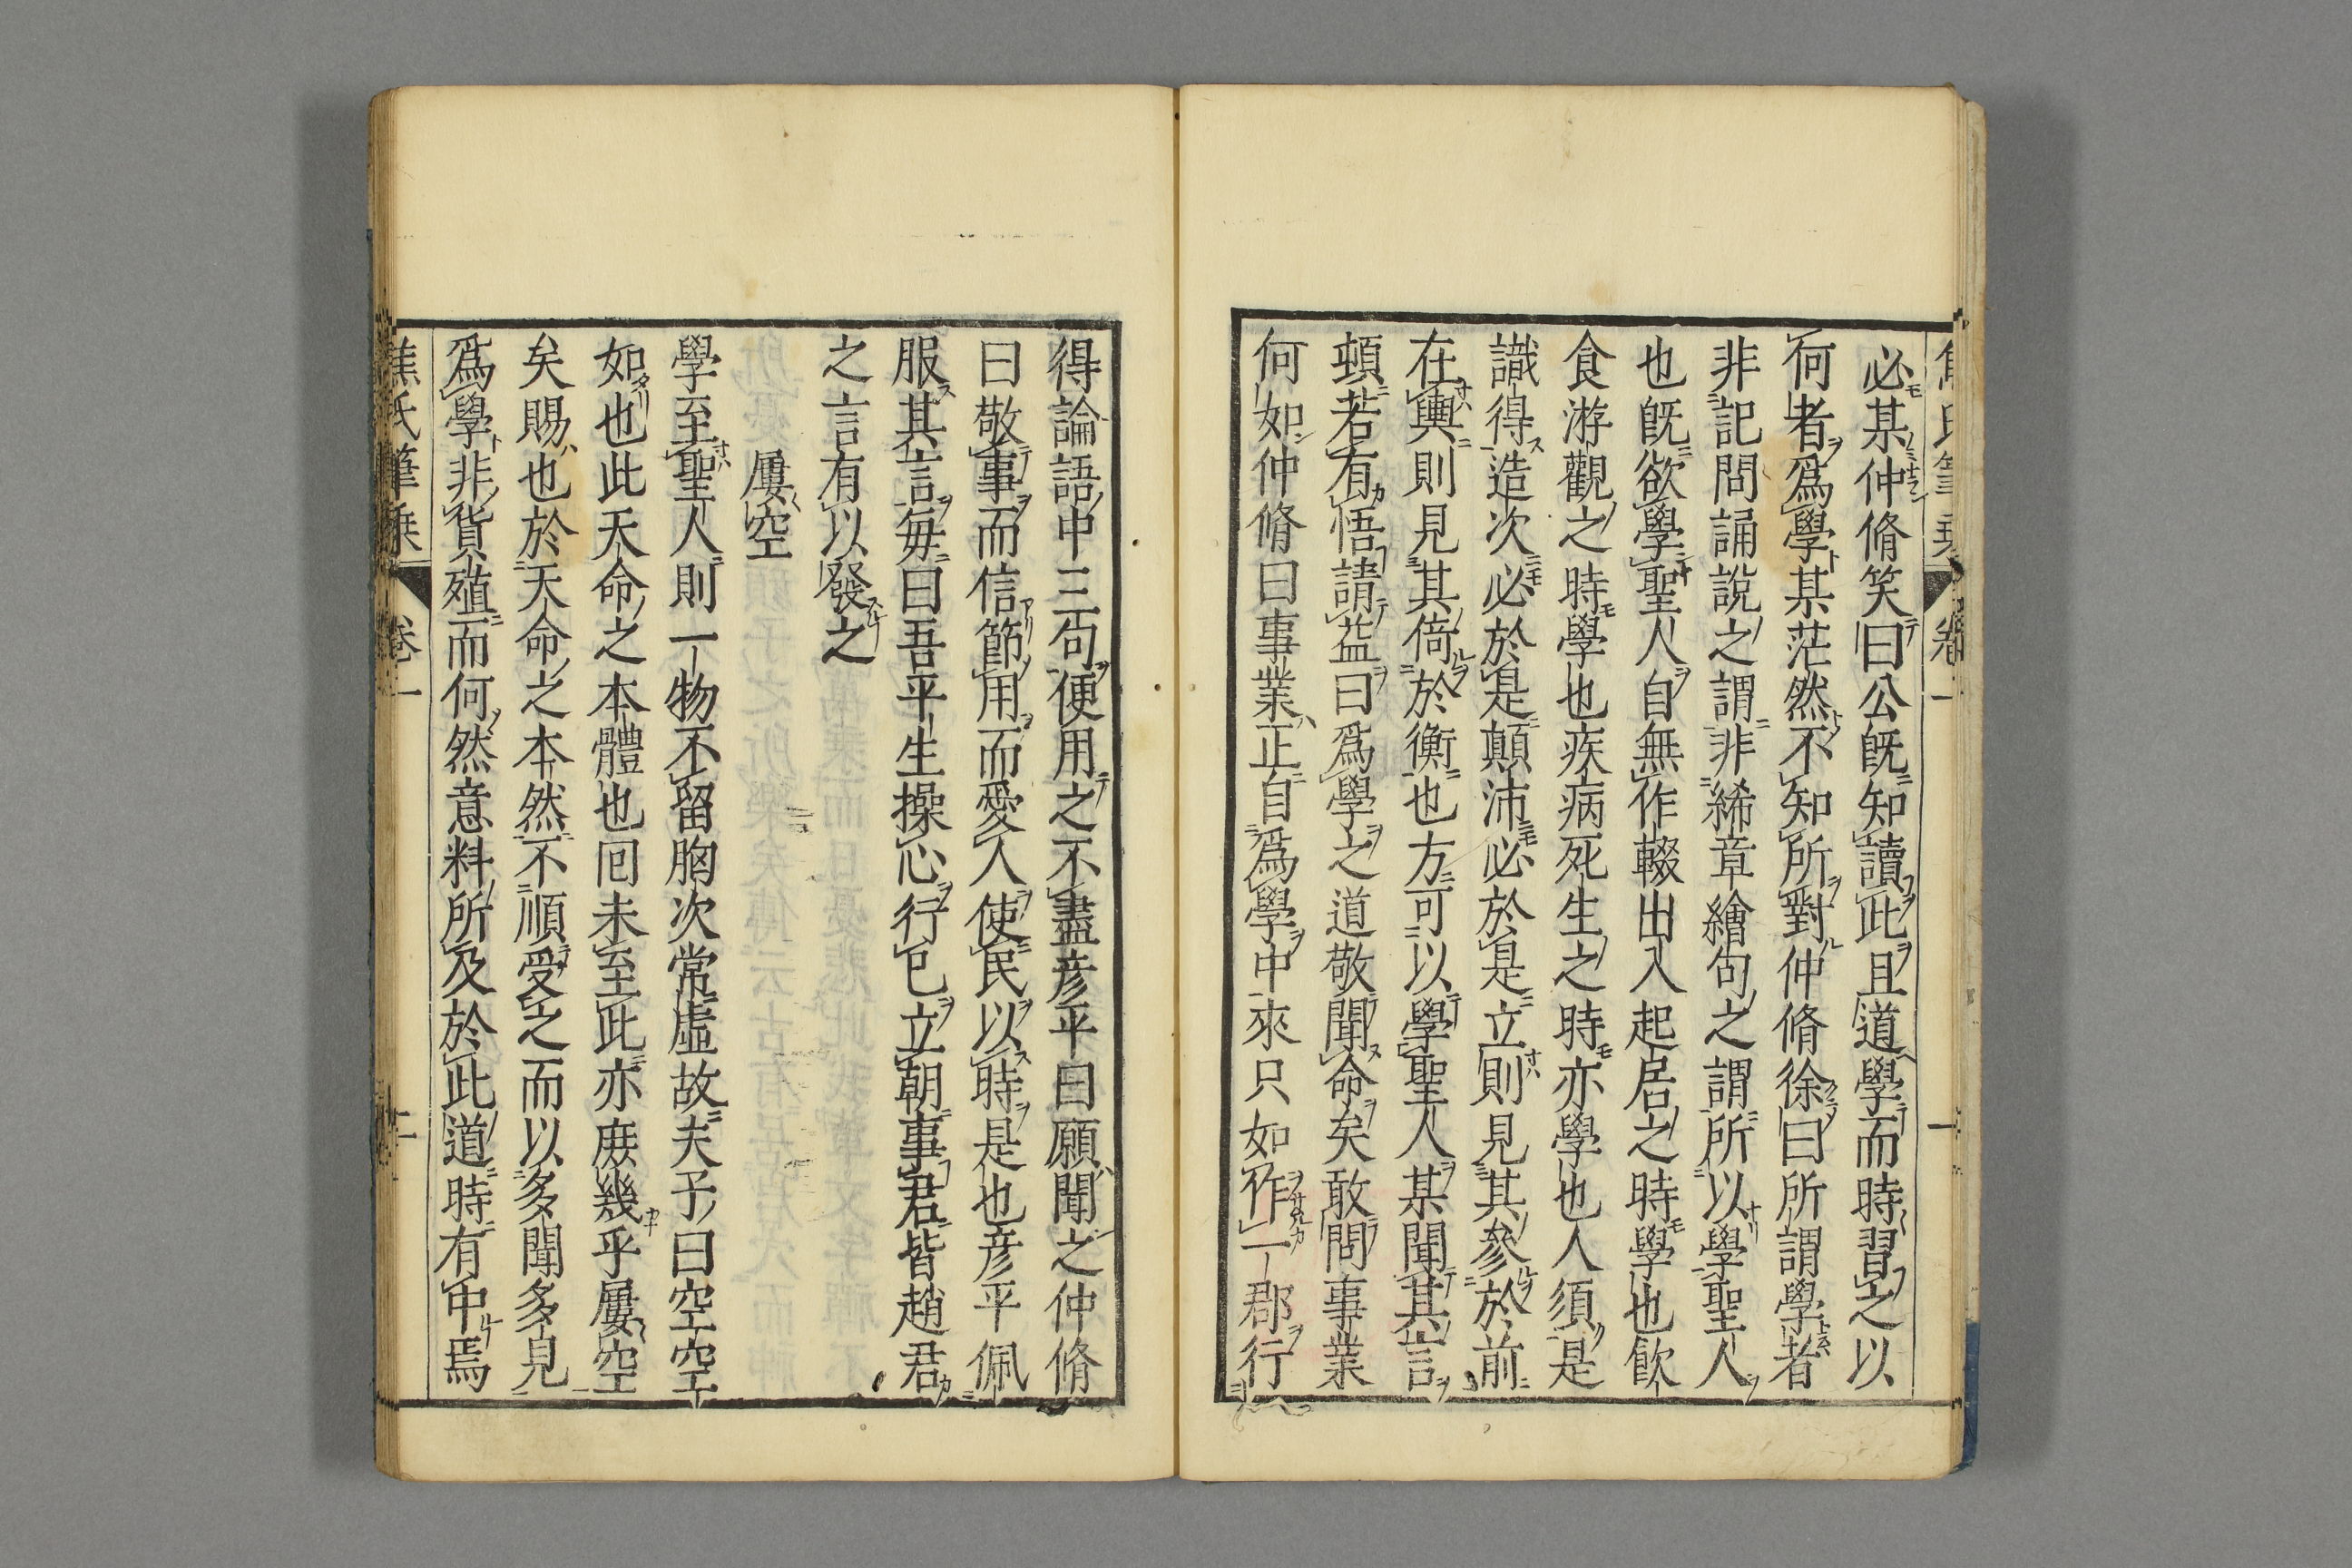 必某仲脩笑曰公旣知讀此且道學而時習之以
何者爲學某茫然不知所對仲脩徐曰所謂學者
非記問誦說之謂非絺章繪句之謂所以學聖人
也旣欲學聖人自無作輟出入起居之時學也飮
食游觀之時學也疾病死生之時亦學也人須是
識得造次必於是顚沛必於是立則見其參於前
在輿則見其倚於衡也方可以學聖人某聞其言
頓若有悟請益曰爲學之道敬聞命矣敢問事業
何如仲脩曰事業正自爲學中來只如作一郡行
得論語中三句便用之不盡彦平曰願聞之仲脩
曰敬事而信節用而愛人使民以時是也彦平佩
服其言每曰吾平生操心行已立朝事君皆趙君
之言有以發之
屢空
學至聖人則一物不留胸次常虛故夫子曰空空
如也此天命之本體也囘未至此亦庶幾乎屢空
矣賜也於天命之本然不順受之而以多聞多見
爲學非貨殖而何然意料所及於此道時有中焉
焦氏筆乗 卷一 二